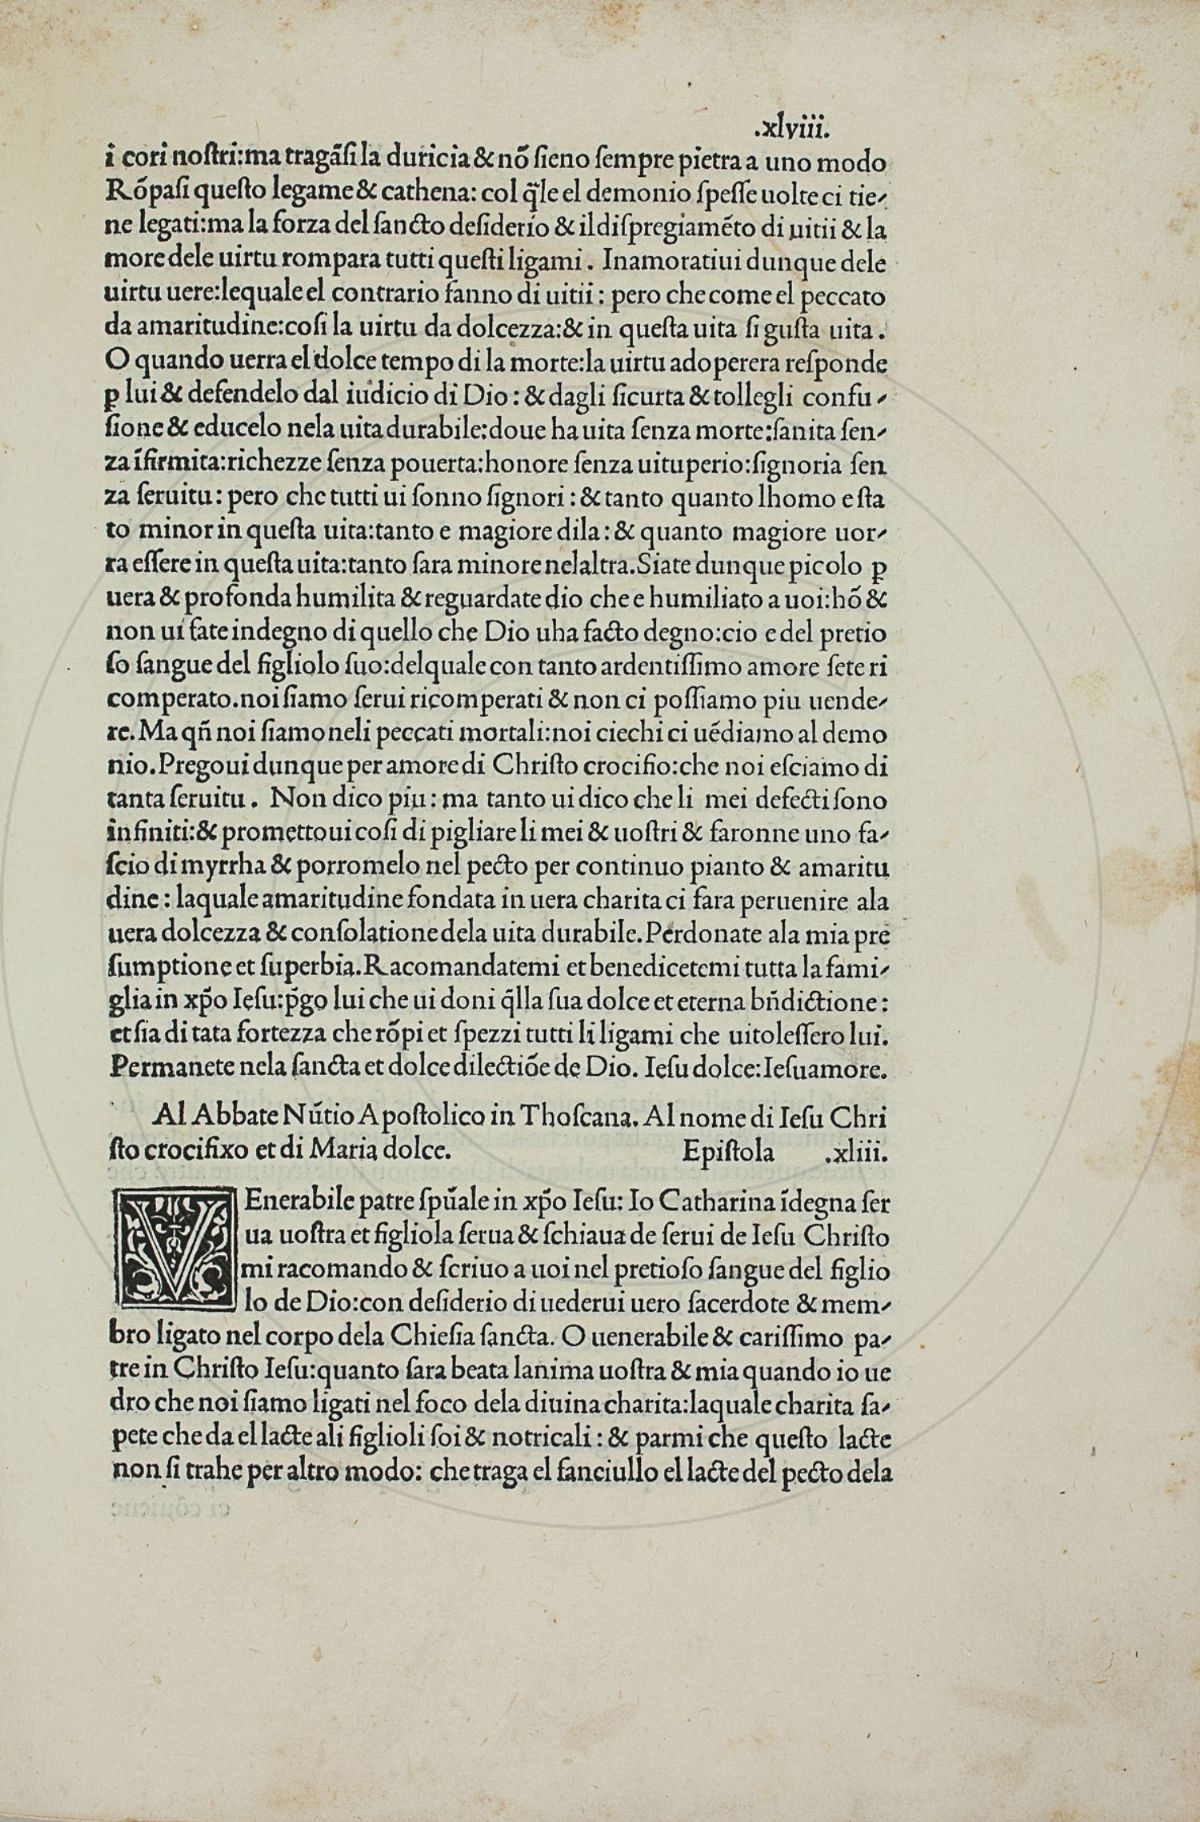 .xlviii.
i cori noſtri:ma tragãſi la duricia & nõ ſieno ſempre pietra a uno modo
Rõpaſi queſto legame & cathena: col q̃le el demonio ſpeſſe uolte ci tie-
ne legati:ma la forza del ſancto deſiderio & il diſpregiamẽto di uitii & la
more dele uirtu rompara tutti queſti ligami . Inamoratiui dunque dele
uirtu uere:lequale el contrario fanno di uitii : pero che come el peccato
da amaritudine:coſi la uirtu da dolcezza:& in queſta uita ſi guſta uita .
O quando uerra el dolce tempo di la morte:la uirtu adoperera reſponde
ꝑ lui & defendelo dal iudicio di Dio : & dagli ſicurta & tollegli confu-
ſione & educelo nela uita durabile:doue ha uita ſenza morte:ſanita ſen-
za ĩfirmita:richezze ſenza pouerta:honore ſenza uituperio:ſignoria ſen
za ſeruitu : pero che tutti ui ſonno ſignori : & tanto quanto lhomo e ſta
to minor in queſta uita:tanto e magiore dila : & quanto magiore uor-
ra eſſere in queſta uita:tanto ſara minore nelaltra.Siate dunque picolo ꝑ
uera & profonda humilita & reguardate dio che e humiliato a uoi:hõ &
non ui fate indegno di quello che Dio uha facto degno:cio e del pretio
ſo ſangue del figliolo ſuo:delquale con tanto ardentiſſimo amore ſete ri
comperato.noi ſiamo ſerui ricomperati & non ci poſſiamo piu uende-
re.Ma qñ noi ſiamo neli peccati mortali:noi ciechi ci uẽdiamo al demo
nio.Pregoui dunque per amore di Chriſto crocifio:che noi eſciamo di
tanta ſeruitu . Non dico piu : ma tanto ui dico che li mei defecti ſono
infiniti:& promettoui coſi di pigliare li mei & uoſtri & faronne uno fa-
ſcio di myrrha & porromelo nel pecto per continuo pianto & amaritu
dine : laquale amaritudine fondata in uera charita ci fara peruenire ala
uera dolcezza & conſolatione dela uita durabile.Perdonate ala mia pre
ſumptione et ſuperbia.Racomandatemi et benedicetemi tutta la fami-
glia in xp̃o Ieſu:p̃go lui che ui doni q̃lla ſua dolce et eterna bñdictione :
et ſia di tata fortezza che rõpi et ſpezzi tutti li ligami che uitoleſſero lui.
Permanete nela ſancta et dolce dilectiõe de Dio. Ieſu dolce:Ieſu amore.
Al Abbate Nũtio Apoſtolico in Thoſcana. Al nome di Ieſu Chri
ſto crocifixo et di Maria dolce. Epiſtola .xliii.
VEnerabile patre ſpũale in xp̃o Ieſu: Io Catharina ĩdegna ſer
ua uoſtra et figliola ſerua & ſchiaua de ſerui de Ieſu Chriſto
mi racomando & ſcriuo a uoi nel pretioſo ſangue del figlio
lo de Dio:con deſiderio di uederui uero ſacerdote & mem-
bro ligato nel corpo dela Chieſia ſancta. O uenerabile & cariſſimo pa-
tre in Chriſto Ieſu:quanto ſara beata lanima uoſtra & mia quando io ue
dro che noi ſiamo ligati nel foco dela diuina charita:laquale charita ſa-
pete che da el lacte ali figlioli ſoi & notricali : & parmi che queſto lacte
non ſi trahe per altro modo: che traga el fanciullo el lacte del pecto dela